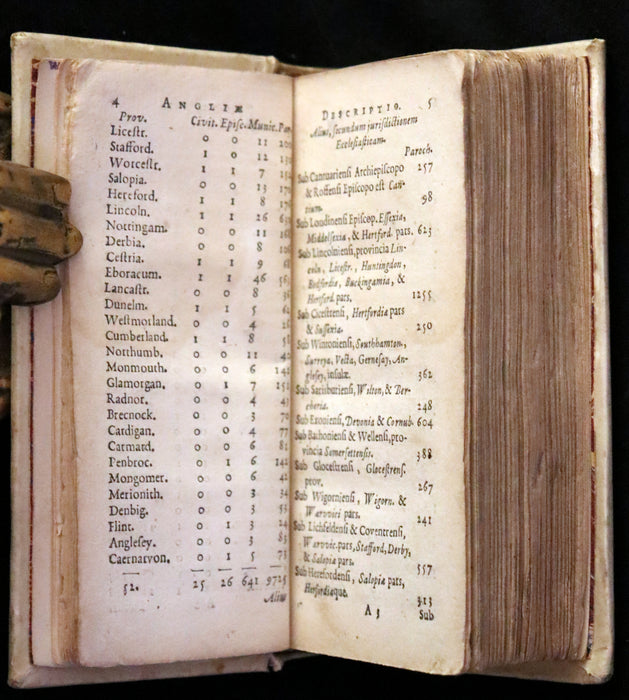 4 ANGLIÆ
Prov. Civit. Episc. Munic. Par.
Licestr. 0 0 11
Stafford. 1 0 12
Worcestr. 1 1 7
Salopia. 0 0 13
Hereford. 1 1 8
Lincoln. 1 1 26
Nottingam. 0 0 11
Derbia. 0 0 8
Cestria. 1 1 9
Eboracum. 1 1 46
Lancastr. 0 0 8
Dunelm. 1 1 5
Westmorland. 0 0 4
Cumberland. 1 1 8
Northumb. 0 0 11
Monmouth. 0 0 6
Glamorgan. 0 1 7
Radnor. 0 0 4
Brecnock. 0 0 3
Cardigan. 0 0 4 77
Carmard. 0 0 6
Penbroc. 0 1 6
Mongomer. 0 0 6
Merionith. 0 0 3 34
Denbig. 0 0 3
Flint. 0 1 3
Anglesey. 0 0 3 83
Caernarvon. 0 1 5 73
52. 25 26 641 9725
Alius
DESCRIPTIO. 5
Alius, secundum jurisdictionem
Ecclesiasticam.
Paroch.
Sub Cantuariensi Archiepiscopo 257
& Roffensi Episcopo est Can-
tium. 98
Sub Londinensi Episcop. Essexia,
Middelsexia, & Hertford. pars. 623
Sub Lincolniensi, provincia Lin-
coln, Licestr, Huntingdon,
Bedfordia, Buckingamia, &
Hertford pars. 1255
Sub Cicestrensi, Hertfordia pars
& Sussexia. 250
Sub Wintoniensi, Southhamton.,
Surreya, Vecta, Gernesay, An-
glesey, insulæ. 362
Sub Sarisburiensi, Wilton, & Ber-
cheria. 248
Sub Exoniensi, Devonia & Cornub. 604
Sub Bathoniensi & Wellensi, pro-
vincia Somersettensis. 388
Sub Glocestrensi, Glocestrens.
prov. 267
Sub Wigorniensi, Wigorn. &
Warwici pars. 241
Sub Lichfeldensi & Coventrensi,
Warwic. pars, Stafford, Derby,
& Salopia pars. 557
Sub Herefordensi, Salopiæ pars,
Herfordiaque. 313
A 3 Sub